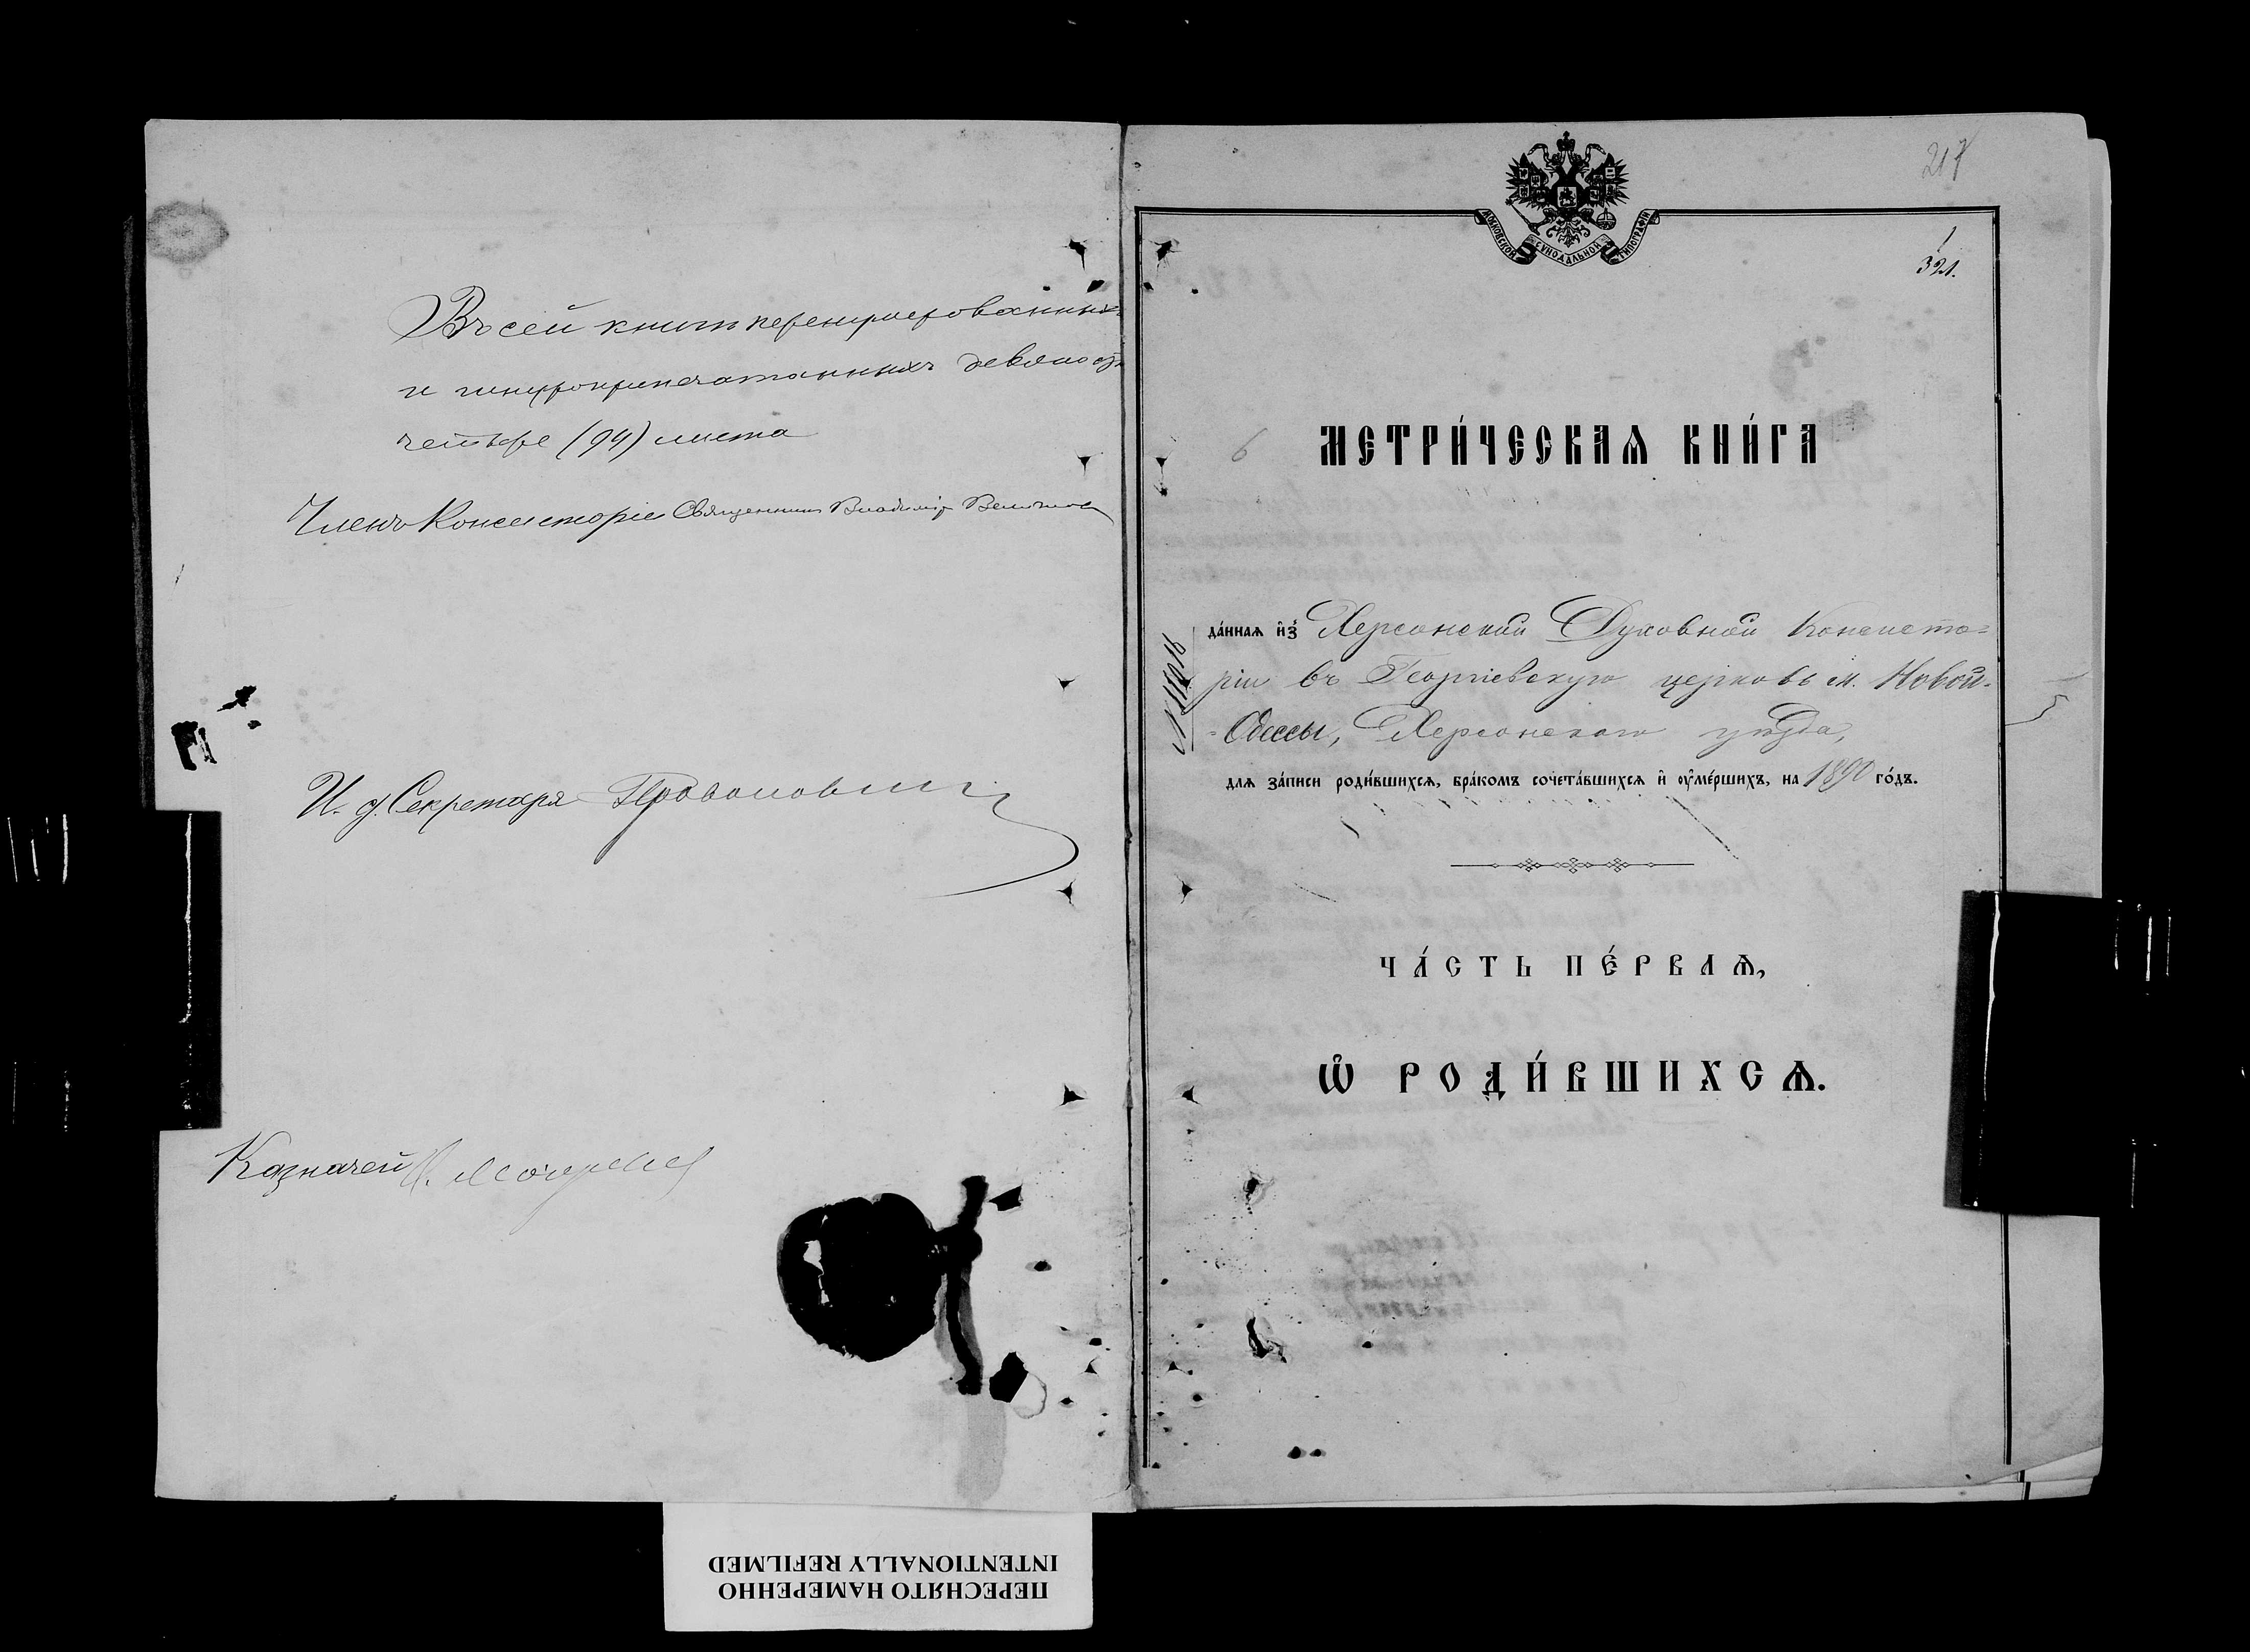 Въ сей книгѣ перенумерованныхъ
и шнуроприпечатанныхъ девяносто
четыре (94) листа
Членъ Консисторіи Священникъ Владиміръ
И. д. Секретаря
Казначей
217
МОСКОВСКОЙ СѴНОДАЛЬНОЙ ТИПОГРАФІИ
1
32л.
6
МЕТРИ́ЧЕСКАѦ КНИ́ГА
да́ннаѧ и҆з̾ Херсонской Духовной Консисто=
ріи въ Георгіевскую церковь м. Новой-
-Одессы, Херсонскаго уѣзда,
длѧ за́писи роди́вшихсѧ, бра́комъ сочета́вшихсѧ и҆ оу҆ме́ршихъ, на 1890 го́дъ.
ЧА́СТЬ ПЕ́РВАѦ,
Ѽ РОДИ́ВШИХСѦ.
ПЕРЕСНЯТО НАМЕРЕННО
INTENTIONALLY REFILMED